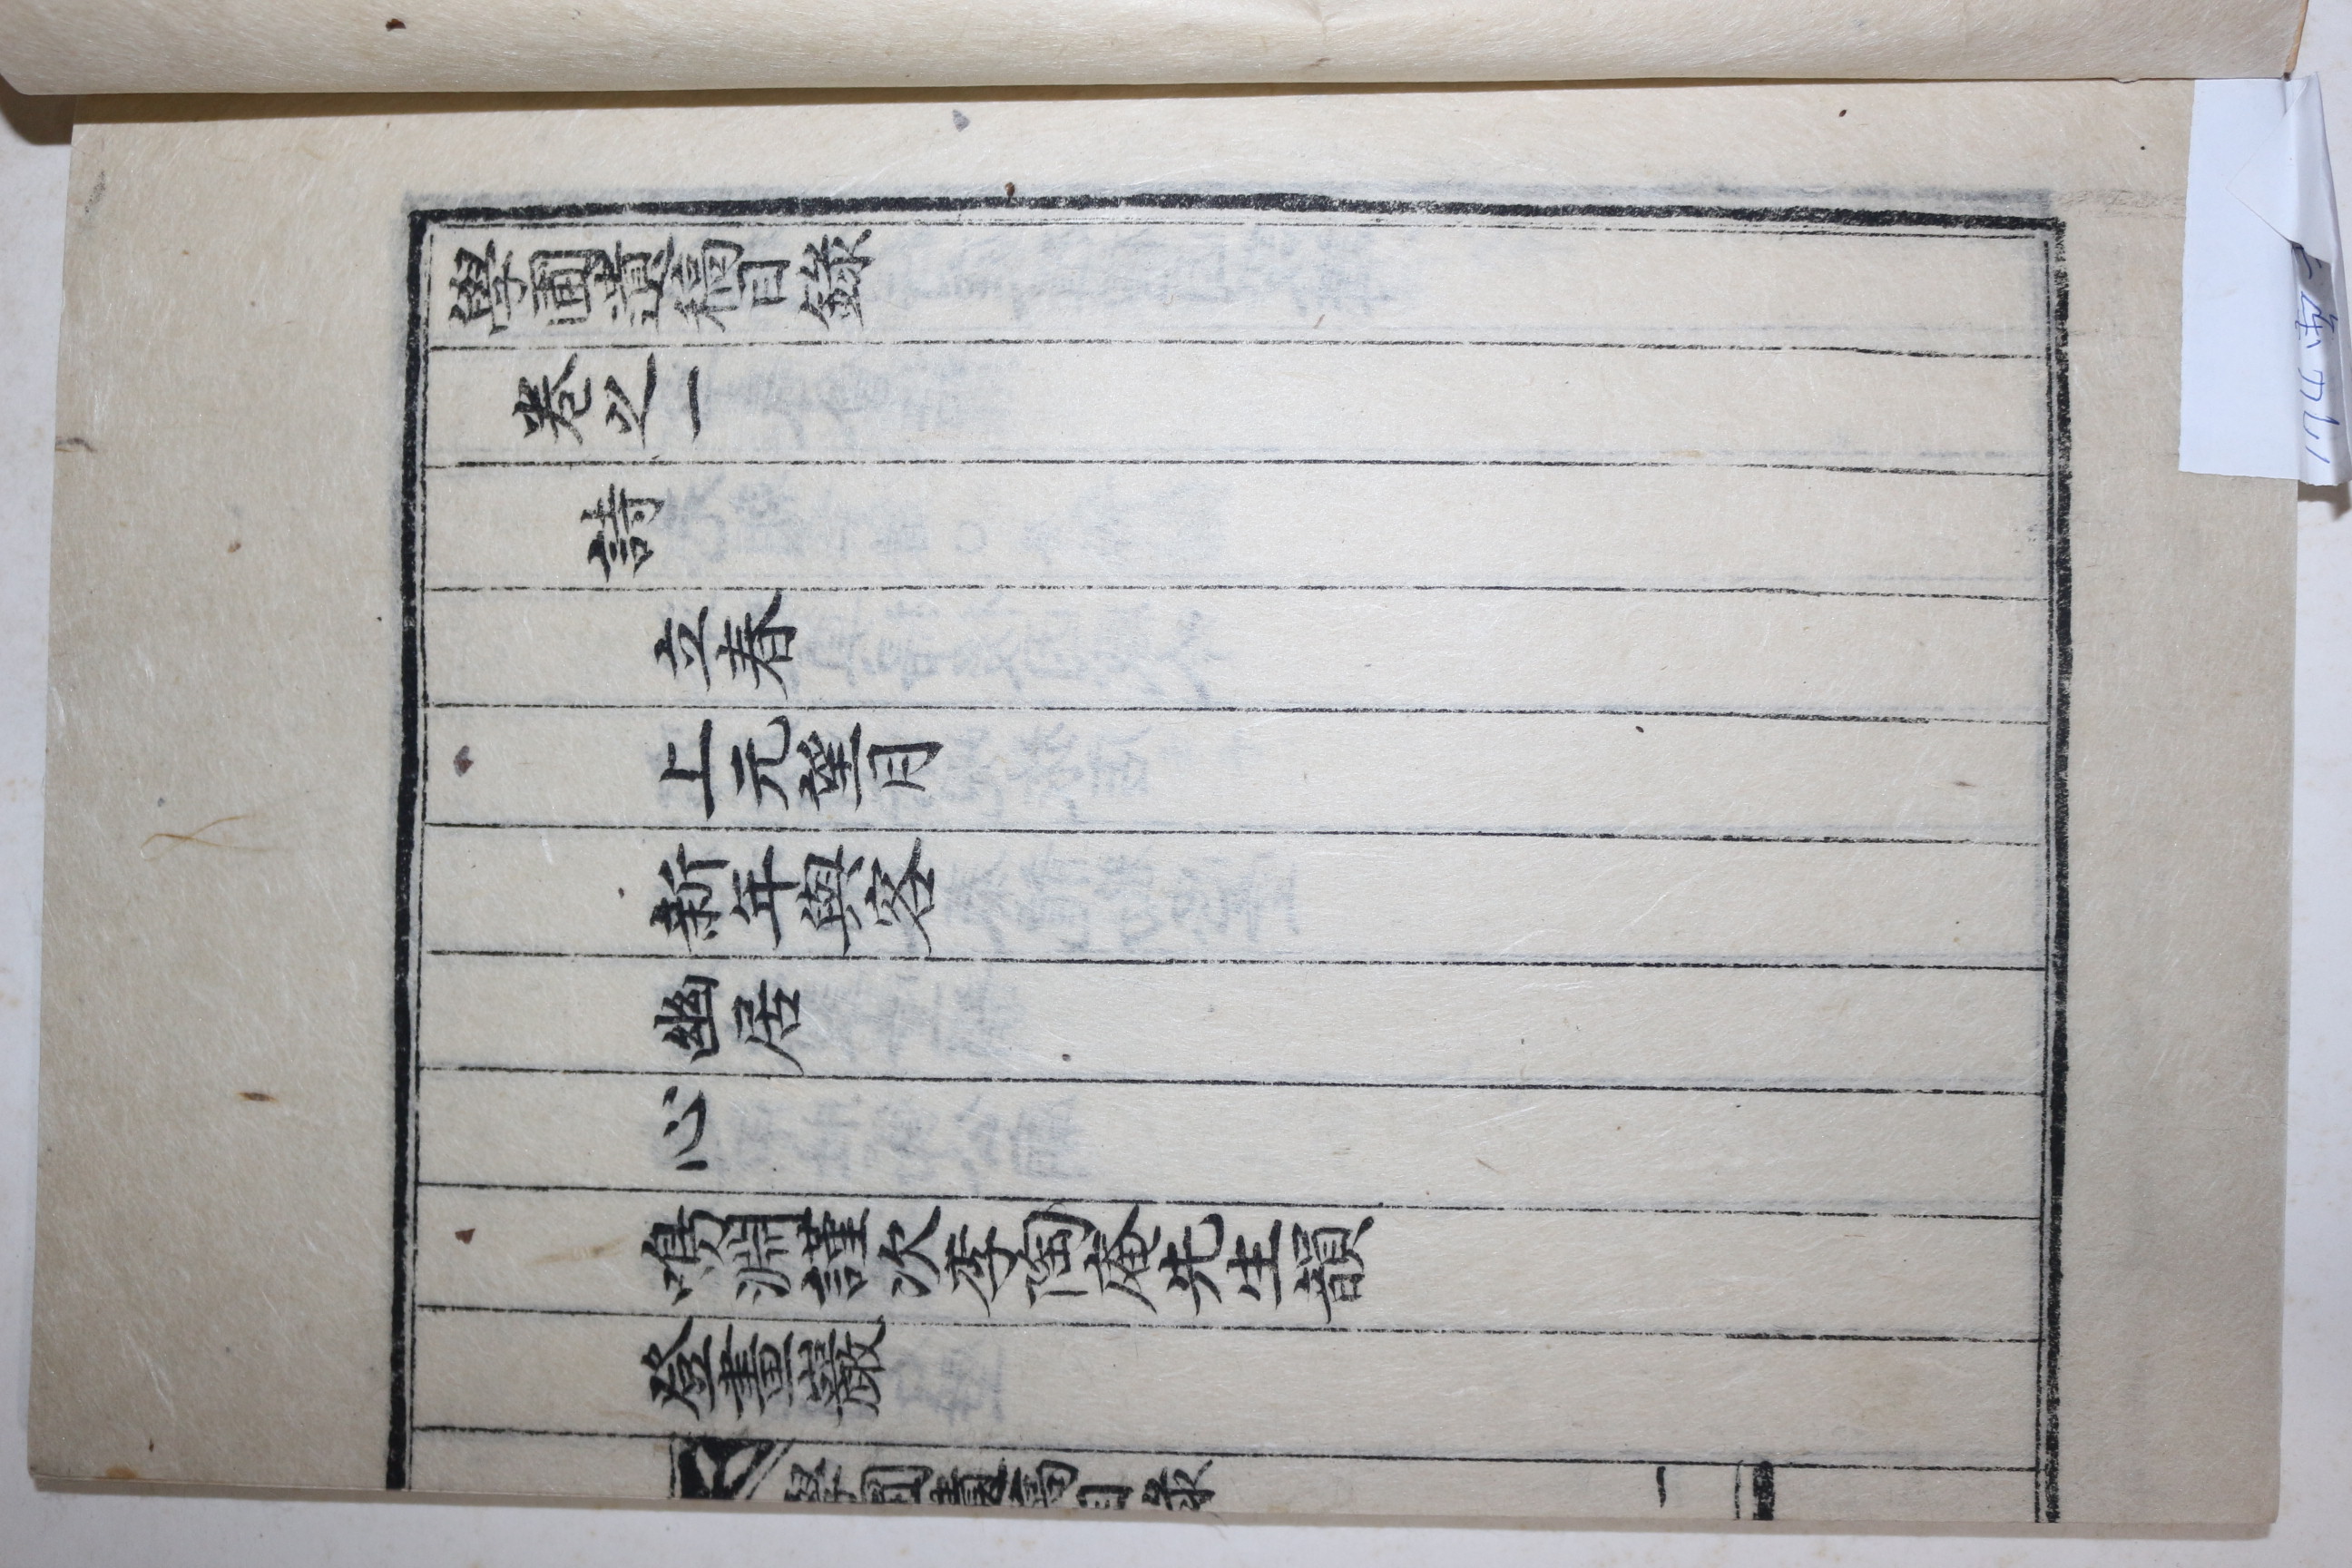 學圃遺稿目錄
卷之一
詩
立春
上元望月
新年與客
幽居
心
鳴淵謹次李陶庵先生韻
登畫巖
學圃遺稿目錄
一